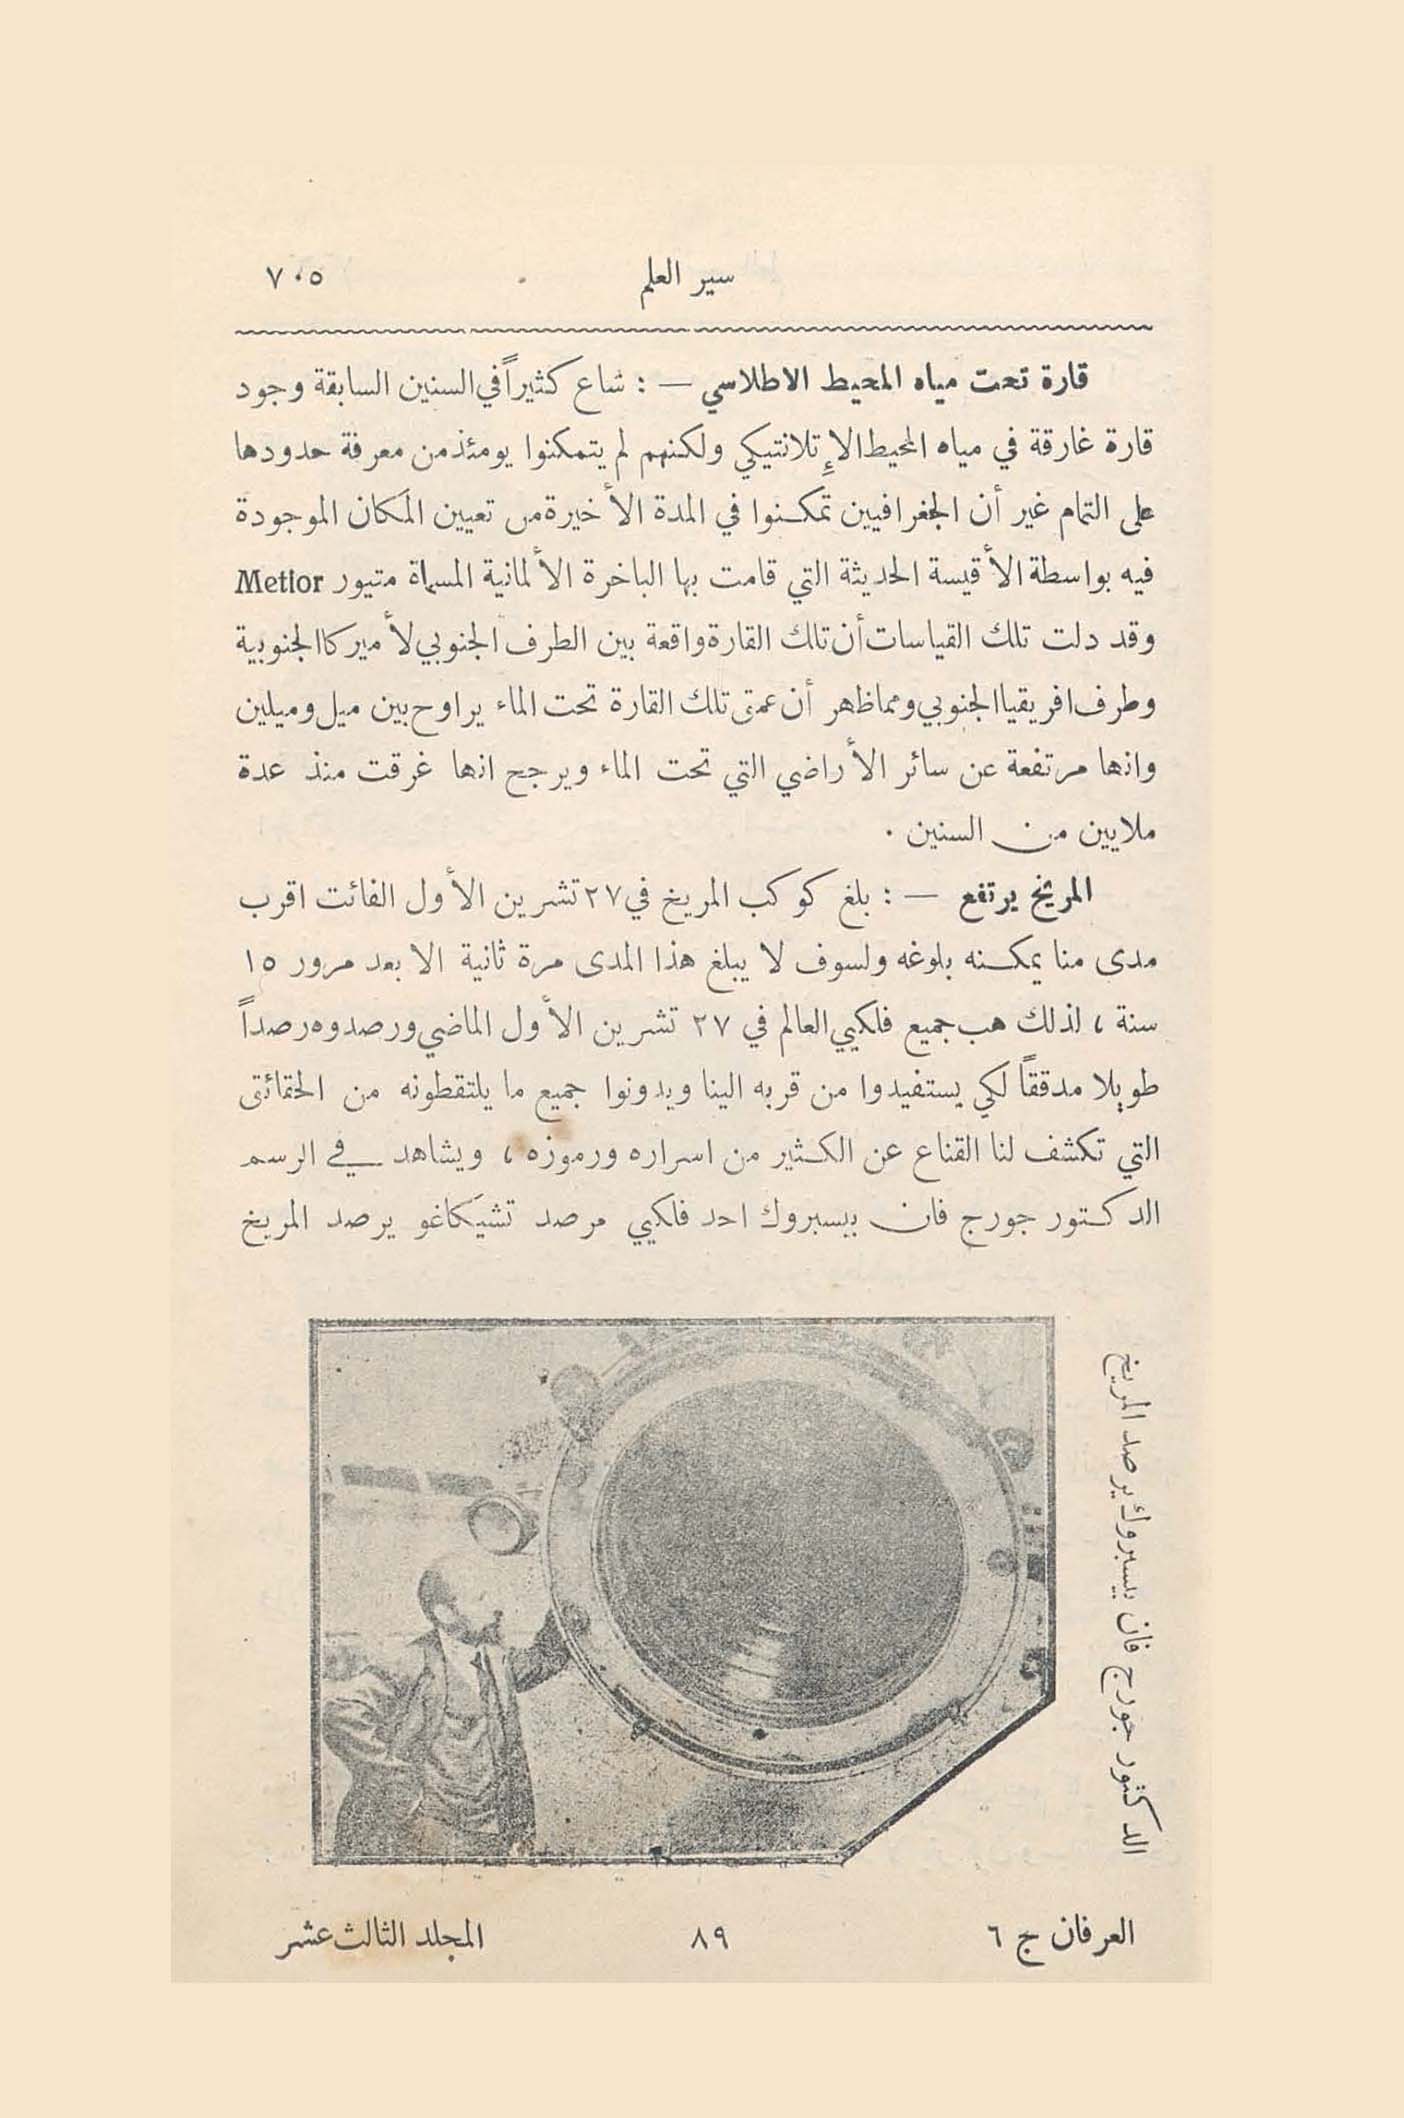 سير العلم
٧٠٥
قارة تحت مياه المحيط الاطلاسي — : شاع كثيراً في السنين السابقة وجود
قارة غارقة في مياه المحيط الإتلانتيكي ولكنهم لم يتمكنوا يومئذ من معرفة حدودها
على التمام غير أن الجغرافيين تمكنوا في المدة الأخيرة من تعيين المكان الموجودة
فيه بواسطة الأقيسة الحديثة التي قامت بها الباخرة الألمانية المسماة متيور Metior
وقد دلت تلك القياسات أن تلك القارة واقعة بين الطرف الجنوبي لأميركا الجنوبية
وطرف افريقيا الجنوبي ومما ظهر أن عمق تلك القارة تحت الماء يراوح بين ميل وميلين
وانها مرتفعة عن سائر الأراضي التي تحت الماء ويرجح انها غرقت منذ عدة
ملايين من السنين .
المريخ يرتفع — : بلغ كوكب المريخ في ٢٧ تشرين الأول الفائت اقرب
مدى منا يمكنه بلوغه ولسوف لا يبلغ هذا المدى مرة ثانية الا بعد مرور ١٥
سنة ، لذلك هب جميع فلكيي العالم في ٢٧ تشرين الأول الماضي ورصدوه رصداً
طويلا مدققاً لكي يستفيدوا من قربه الينا ويدونوا جميع ما يلتقطونه من الحقائق
التي تكشف لنا القناع عن الكثير من اسراره ورموزه ، ويشاهد في الرسم
الدكتور جورج فان بيسبروك احد فلكيي مرصد تشيكاغو يرصد المريخ
الدكتور جورج فان بيسبروك يرصد المريخ
العرفان ج ٦
٨٩
المجلد الثالث عشر